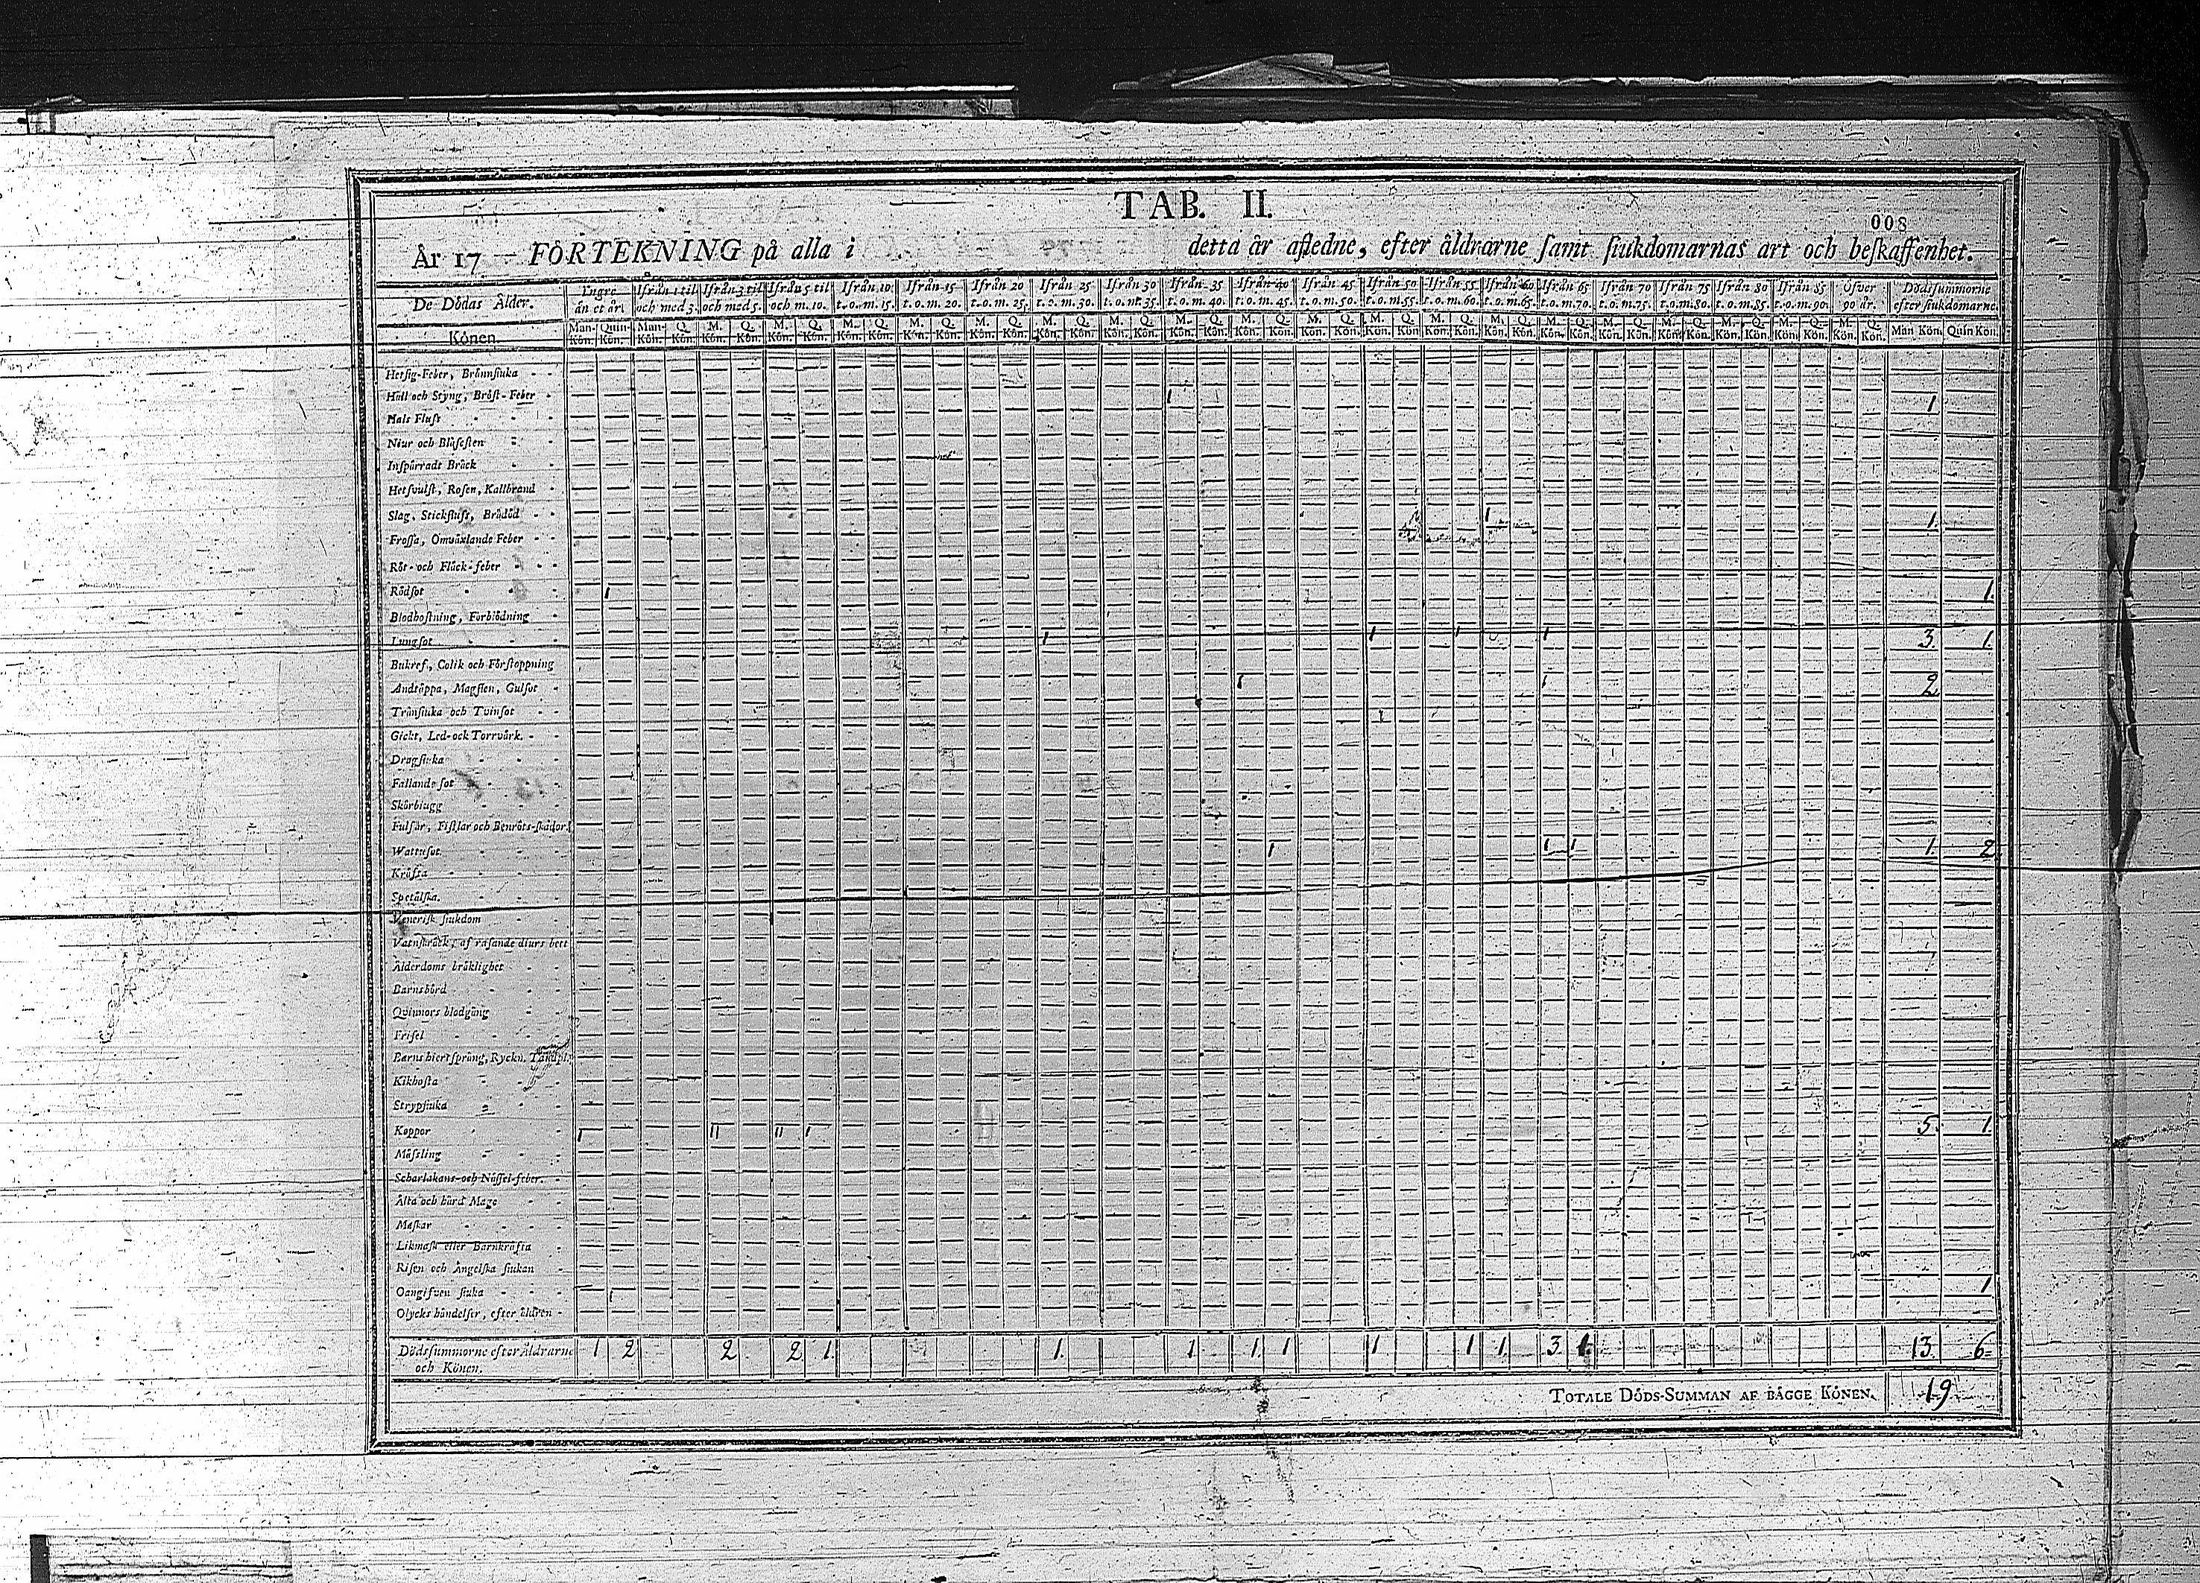 TAB. II.
008
År 17 — FÖRTEKNING på alla i detta år afledne, efter åldrarne samt siukdomarnas art och beskaffenhet.
De Dödas Ålder. Yngre än et år. Ifrån 1 til och med 3. Ifrån 3 til och med 5. Ifrån 5 til och m. 10. Ifrån 10 t.o.m. 15. Ifrån 15 t.o.m. 20. Ifrån 20 t.o.m. 25. Ifrån 25 t.o.m. 30. Ifrån 30 t.o.m. 35. Ifrån 35 t.o.m. 40. Ifrån 40 t.o.m. 45. Ifrån 45 t.o.m. 50. Ifrån 50 t.o.m. 55. Ifrån 55 t.o.m. 60. Ifrån 60 t.o.m. 65. Ifrån 65 t.o.m. 70. Ifrån 70 t.o.m. 75. Ifrån 75 t.o.m. 80. Ifrån 80 t.o.m. 85. Ifrån 85 t.o.m. 90. Öfver 90 år. Dödssummorne efter siukdomarne.
Könen. Man-Kön. Quin-Kön. Man-Kön. Q. Kön. M. Kön. Q. Kön. M. Kön. Q. Kön. M. Kön. Q. Kön. M. Kön. Q. Kön. M. Kön. Q. Kön. M. Kön. Q. Kön. M. Kön. Q. Kön. M. Kön. Q. Kön. M. Kön. Q. Kön. M. Kön. Q. Kön. M. Kön. Q. Kön. M. Kön. Q. Kön. M. Kön. Q. Kön. M. Kön. Q. Kön. M. Kön. Q. Kön. M. Kön. Q. Kön. M. Kön. Q. Kön. M. Kön. Q. Kön. M. Kön. Q. Kön. Män Kön. Quin Kön.
Hetsig-Feber, Brännsiuka
Håll och Styng, Bröst-Feber 1 1
Hals Fluss
Niur och Blåsesten
Inspärradt Bråck
Hetsvulst, Rosen, Kallbrand
Slag, Stickfluss, Brådöd 1 1.
Frossa, Omväxlande Feber
Röt- och Fläck-feber
Rödsot 1 1.
Blodhostning, Förblödning
Lungsot 1 1 1 1 3. 1.
Bukref, Colik och Förstoppning
Andtäppa, Magsten, Gulsot 1 1 2
Trånsiuka och Tvinsot
Gickt, Led- och Torrvärk.
Dragsiuka
Fallande sot
Skörbiugg
Fulsår, Fistlar och Benröts-skador
Wattusot 1 1 1 1. 2
Kräfta
Spetälska.
Venerisk siukdom
Vatnskräck, af rasande diurs bett
Ålderdoms bräklighet
Barnsbörd
Qvinnors blodgång
Frisel
Barns hiertsprång, Ryckn.
Kikhosta
Strypsiuka
Koppor 1 11 11 1 5. 1.
Mässling
Scharlakans- och Nässel-feber.
Älta och hård Mage
Maskar
Likmask eller Barnkräfta
Risen och Ängelska siukan
Oangifven siuka 1
Olycks händelser, efter åldren
Dödssummorne efter Åldrarne 1 2 2 2 1. 1. 1 1. 1 1 1 1. 3 1. 13. 6
och Könen.
TOTALE DÖDS-SUMMAN AF BÅGGE KÖNEN. 19